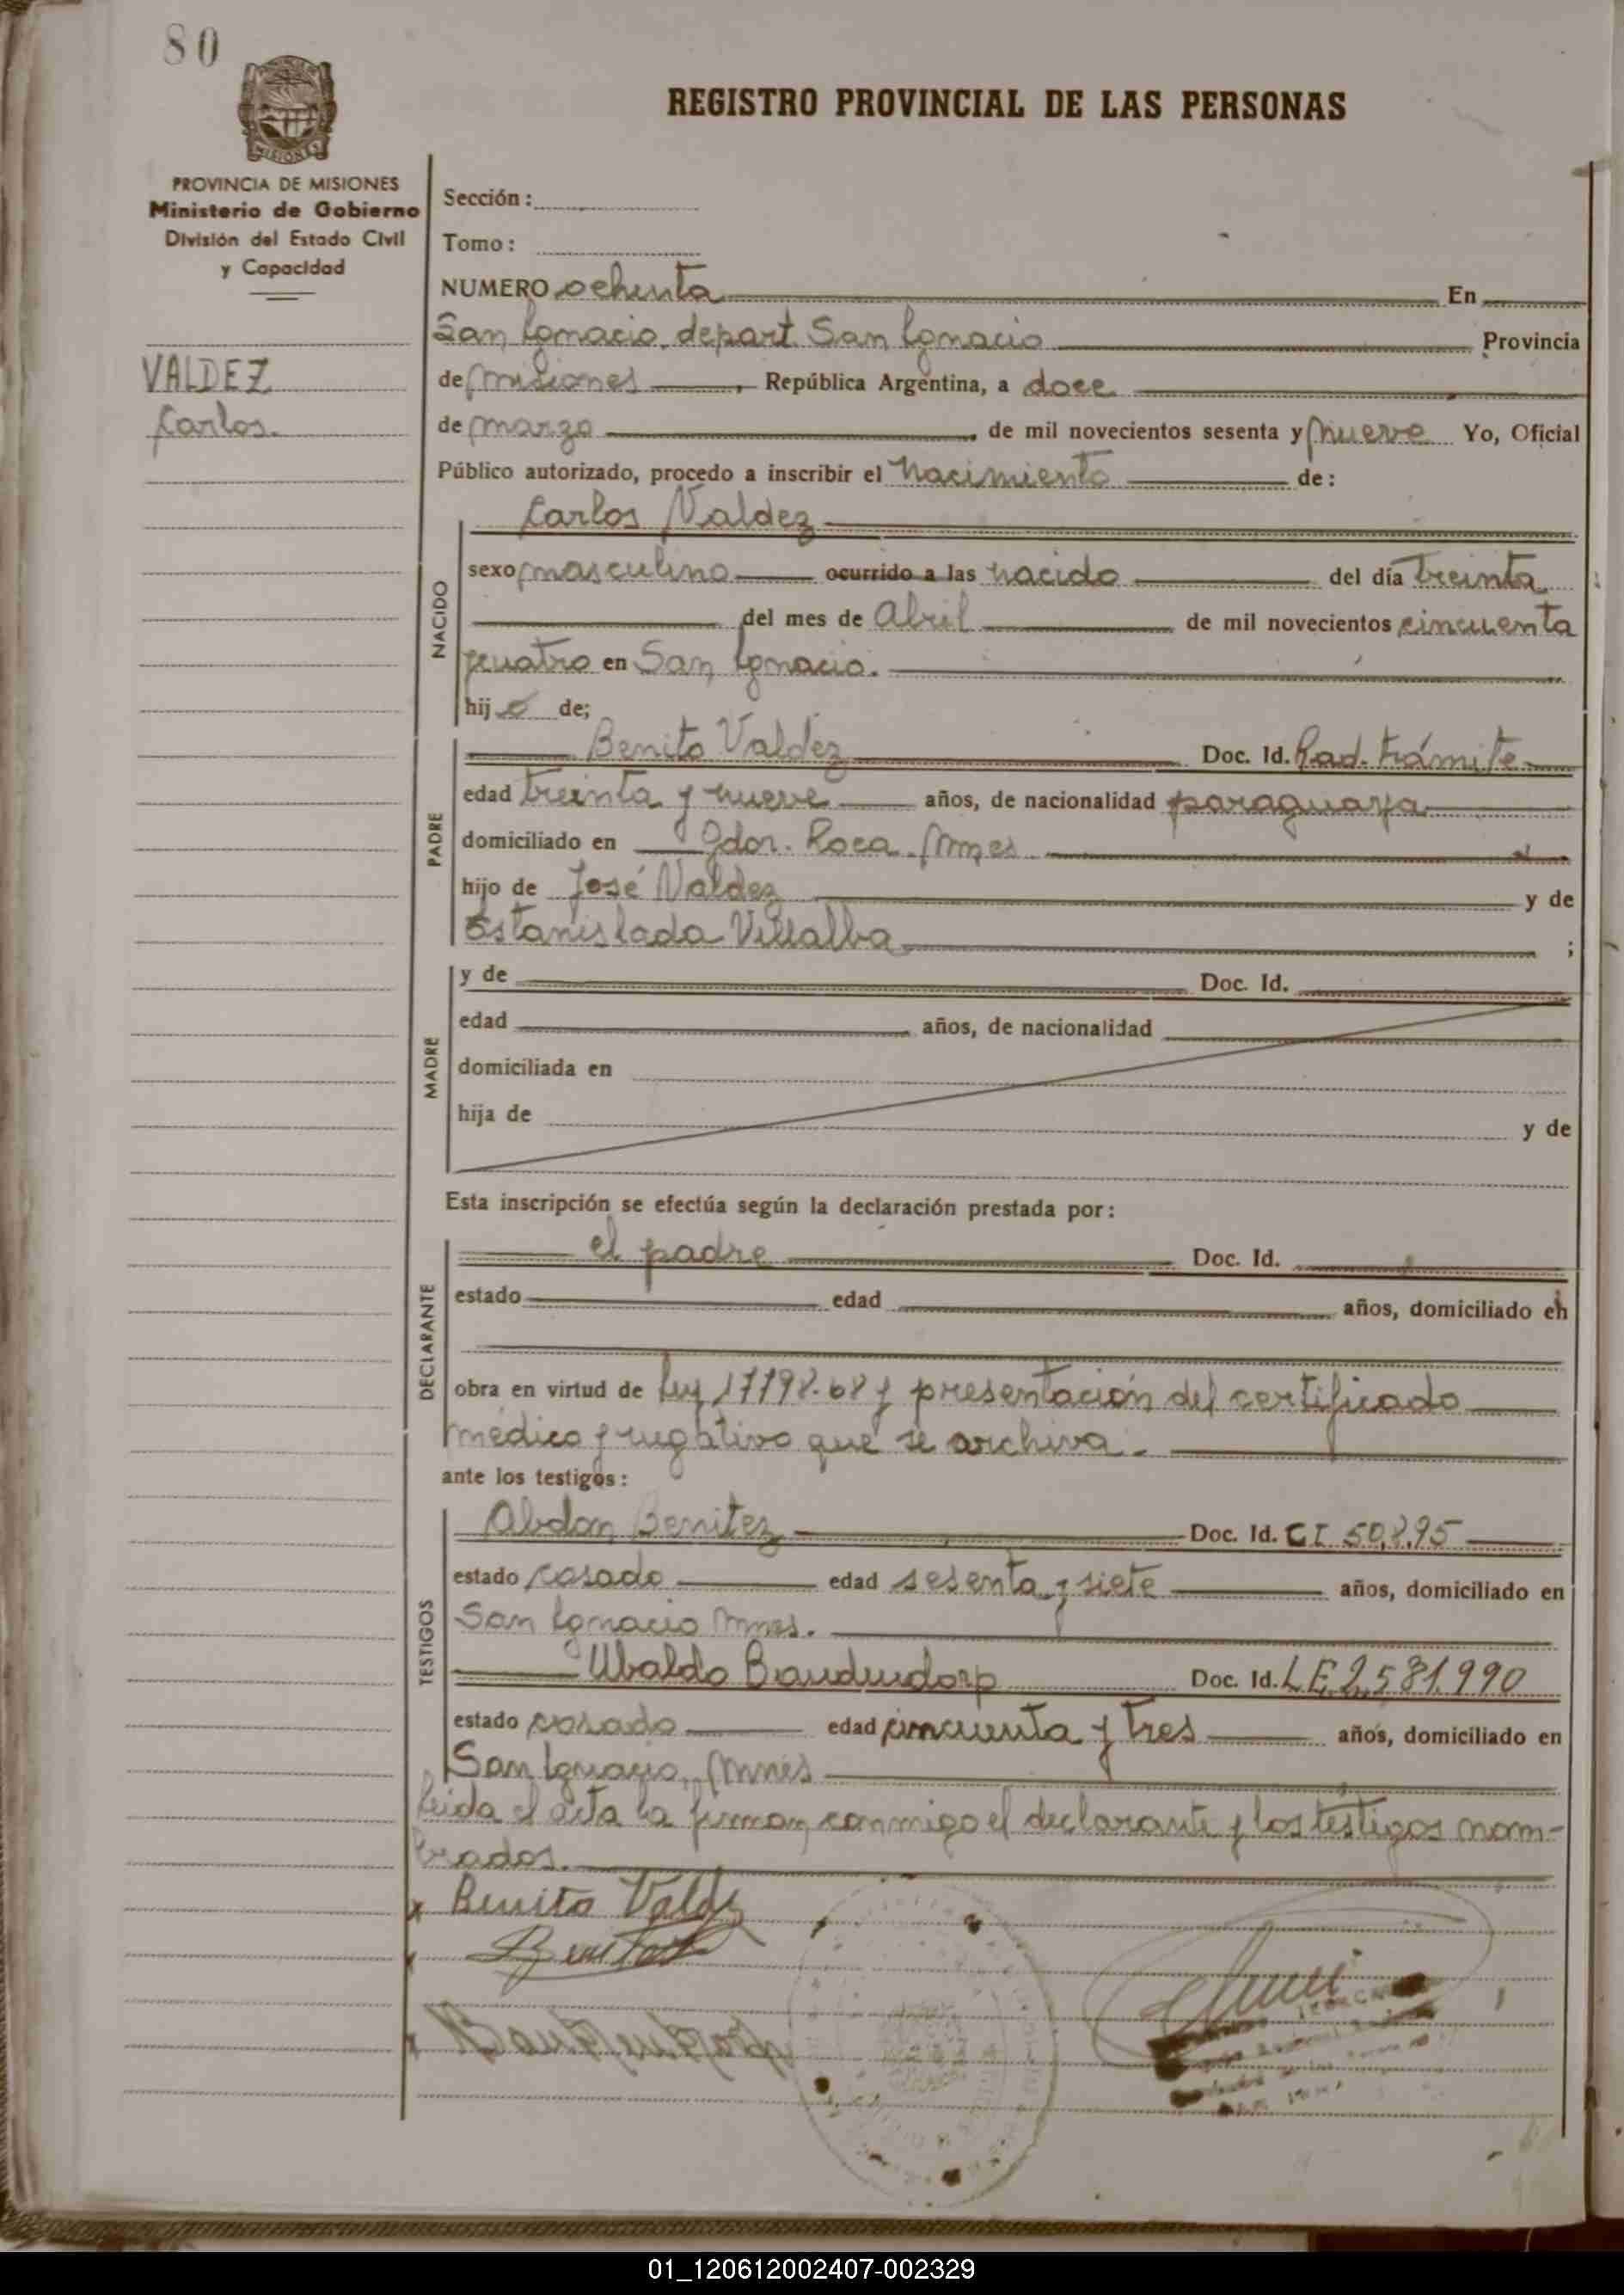 80
MISIONES
REGISTRO PROVINCIAL DE LAS PERSONAS
PROVINCIA DE MISIONES
Ministerio de Gobierno
División del Estado Civil
y Capacidad
VALDEZ
Carlos.
Sección:
Tomo:
NUMERO ochenta En
San Ignacio, depart. San Ignacio Provincia
de Misiones, República Argentina, a doce
de marzo de mil novecientos sesenta y nueve Yo, Oficial
Público autorizado, procedo a inscribir el Nacimiento de:
NACIDO
Carlos Valdez
sexo masculino ocurrido a las nacido del día treinta
del mes de Abril de mil novecientos cincuenta
y cuatro en San Ignacio.
hijo de;
PADRE
Benito Valdez Doc. Id. Rad. trámite
edad treinta y nueve años, de nacionalidad paraguaya
domiciliado en Gdor. Roca. Mnes
hijo de José Valdez y de
Estanislada Villalba ;
MADRE
y de Doc. Id.
edad años, de nacionalidad
domiciliada en
hija de y de
Esta inscripción se efectúa según la declaración prestada por:
DECLARANTE
el padre Doc. Id.
estado edad años, domiciliado en
obra en virtud de Ley 17198-68 y presentación del certificado
médico y negativo que se archiva.
ante los testigos:
TESTIGOS
Abdon Benitez Doc. Id. CI 50.895
estado casado edad sesenta y siete años, domiciliado en
San Ignacio Mnes.
Ubaldo Baudendorp Doc. Id. LE 2.581.990
estado casado edad cincuenta y tres años, domiciliado en
San Ignacio, Mnes
leida el acta la firman conmigo el declarante y los testigos nom-
brados.
x Benito Valdez
x
x Baudendorp
01_120612002407-002329